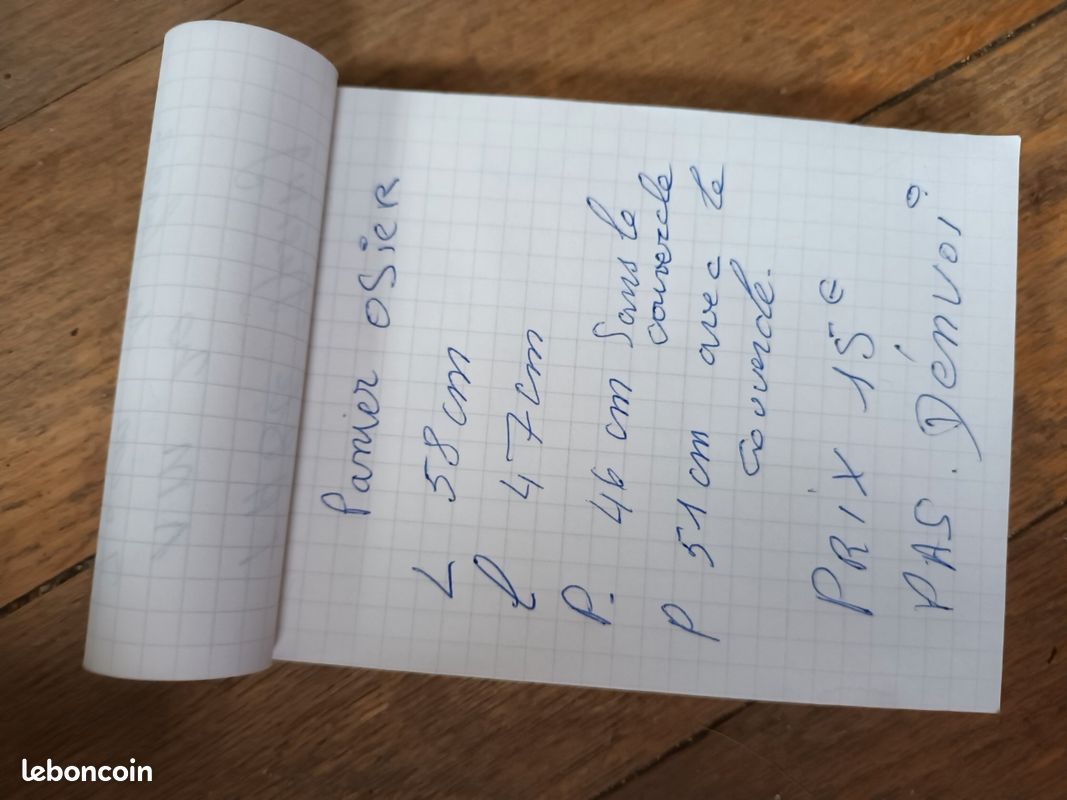 Panier OSieR
L 58 cm
l 47 cm
P. 46 cm Sans le
couvercle
P 51 cm avec le
couvercle.
PRiX 15 €
PAS. Dénvoi
leboncoin